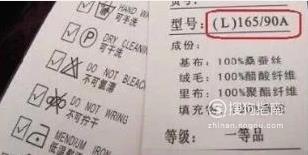 HAND WA
可手洗
DRY CLEANI
可干洗
DO NOT BLEAC
不可氯漂
DO NOT WRING
不可拧干
MENDIUM IRON
型号: (L)165/90A
成份:
基布: 100%桑蚕丝
绒毛: 100%醋酸纤维
里布: 100%聚酯纤维
填充
等级: 一等品
首席收藏网
shouxi.com